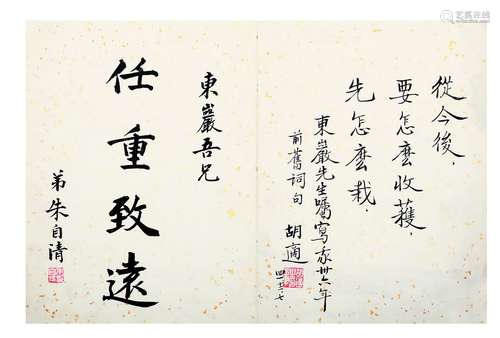 從今後，
要怎麼收獲，
先怎麼栽．
東巖先生囑寫我卅六年
前舊詞句
胡適
東巖吾兄
任重致遠
弟朱自清